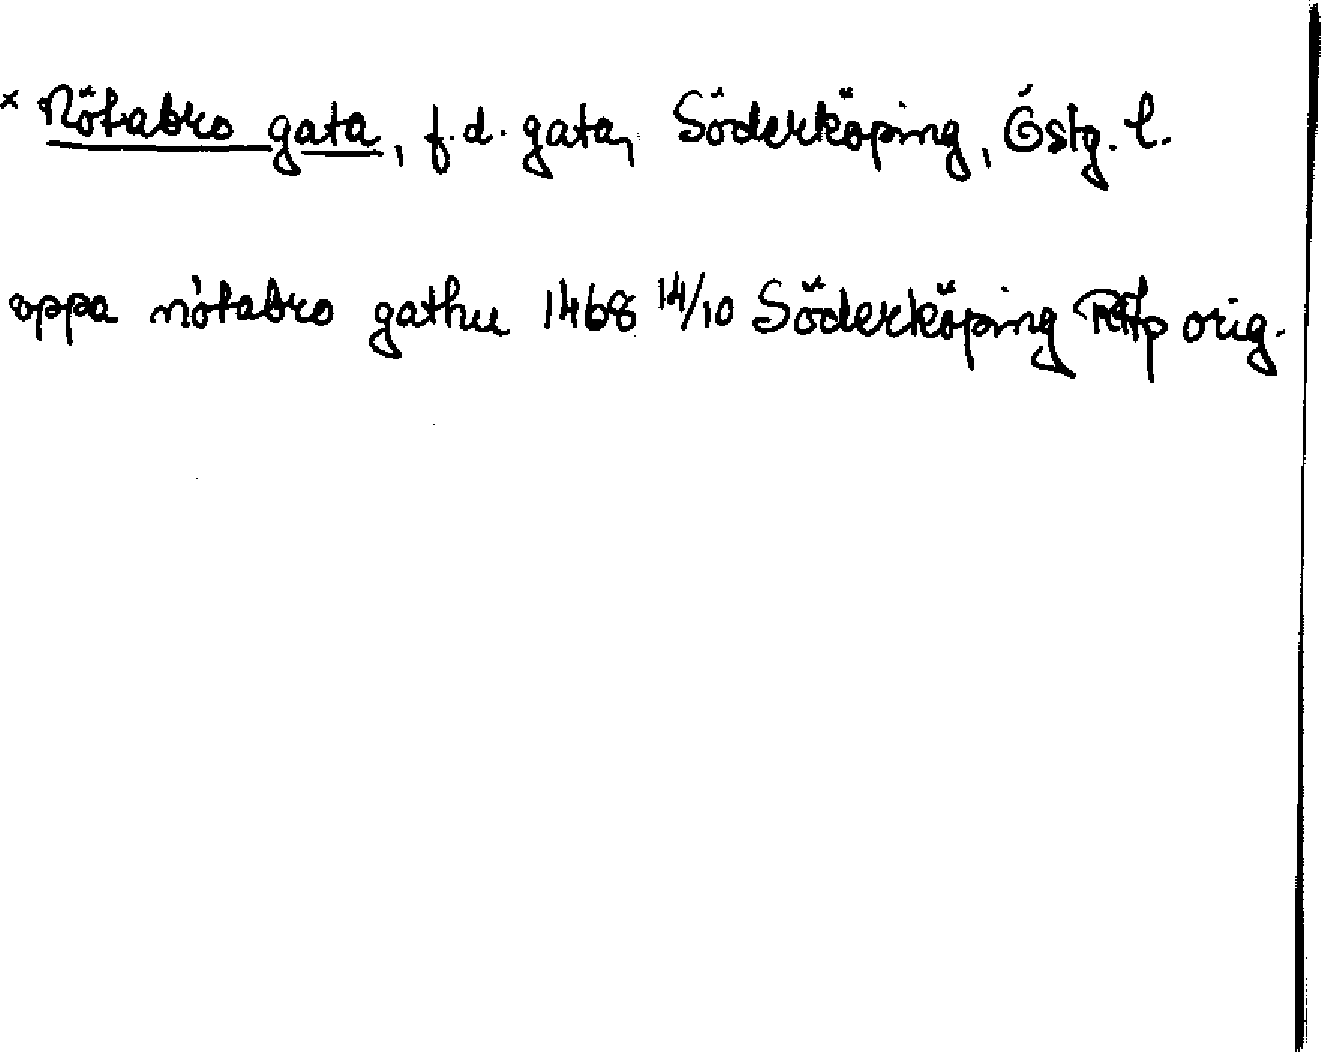 × Nötabro gata, f.d. gata, Söderköping, Östg. l.
oppa nötabro gathu 1468 14/10 Söderköping RAp orig.